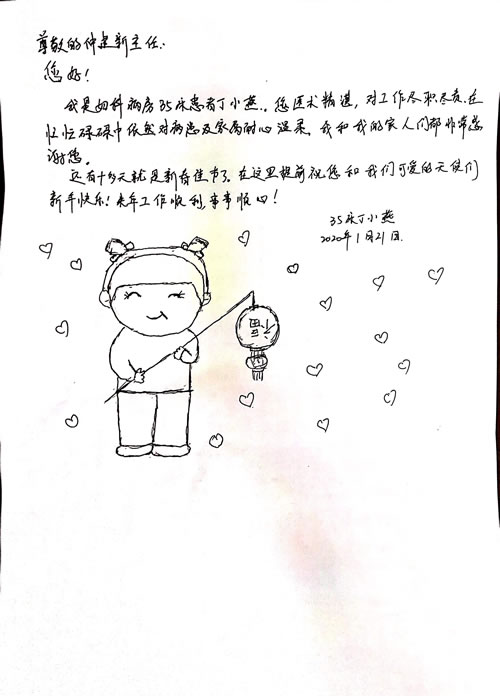 尊敬的仲建新主任：
您好！
我是妇科病房35床患者丁小燕。您医术精湛，对工作尽职尽责，在
忙忙碌碌中依然对病患及家属耐心温柔，我和我的家人们都非常感
谢您。
还有十多天就是新春佳节了，在这里提前祝您和我们可爱的天使们
新年快乐！来年工作顺利，事事顺心！
35床丁小燕
2020年1月21日.
福